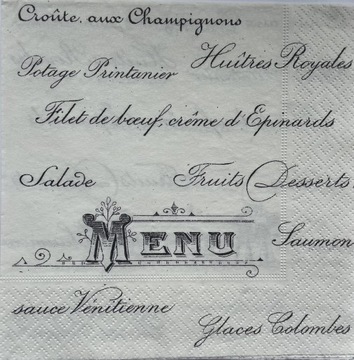 Croûte, aux Champignons
Huîtres Royales
Potage Printanier
Filet de bœuf, crême d'Epinards
Salade
Fruits Desserts
MENU
Saumon
sauce Vénitienne
Glaces Colombes